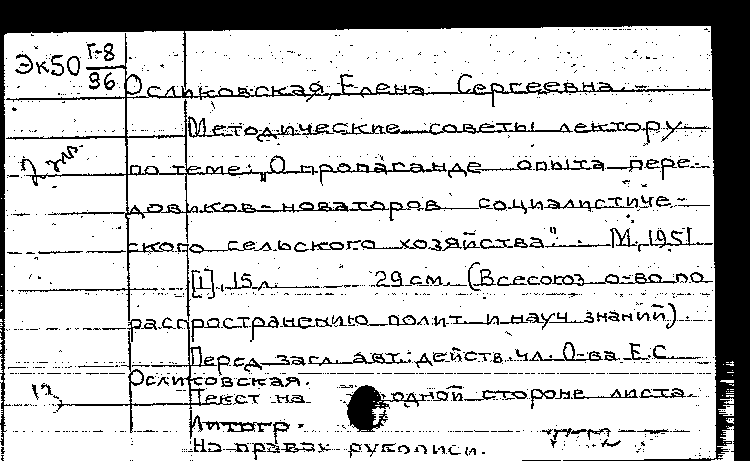 Эк50 Г-8
96
Осликовская, Елена Сергеевна. -
Методические советы лектору
по теме: „О пропаганде опыта пере-
довиков-новаторов социалистиче-
ского сельского хозяйства". М., 1951
[1], 15 л. 29 см. (Всесоюз. о-во по
распространению полит. и науч. знаний).
Перед загл. авт.: действ. чл. О-ва Е.С.
Осликовская.
Текст на одной стороне листа.
Литогр.
На правах рукописи.